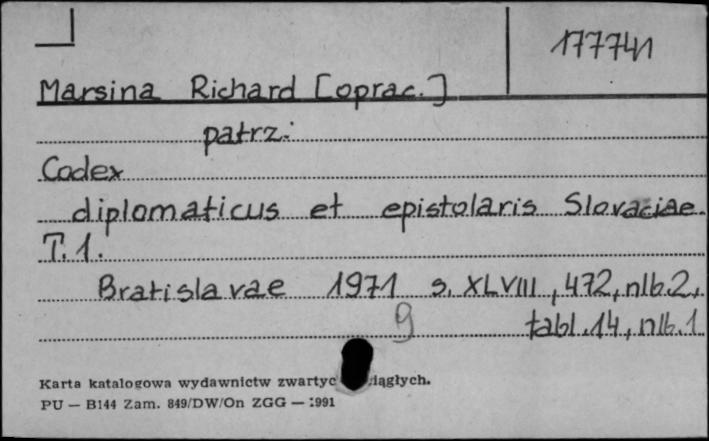 177741
Marsina Richard [oprac.]
patrz:
Codex
diplomaticus et epistolaris Slovaciae.
T. 1.
Bratislavae 1971 s. XLVIII, 472, nlb. 2,
tabl. 14, nlb. 1
9
Karta katalogowa wydawnictw zwartyc iągłych.
PU — B144 Zam. 849/DW/On ZGG — 1991